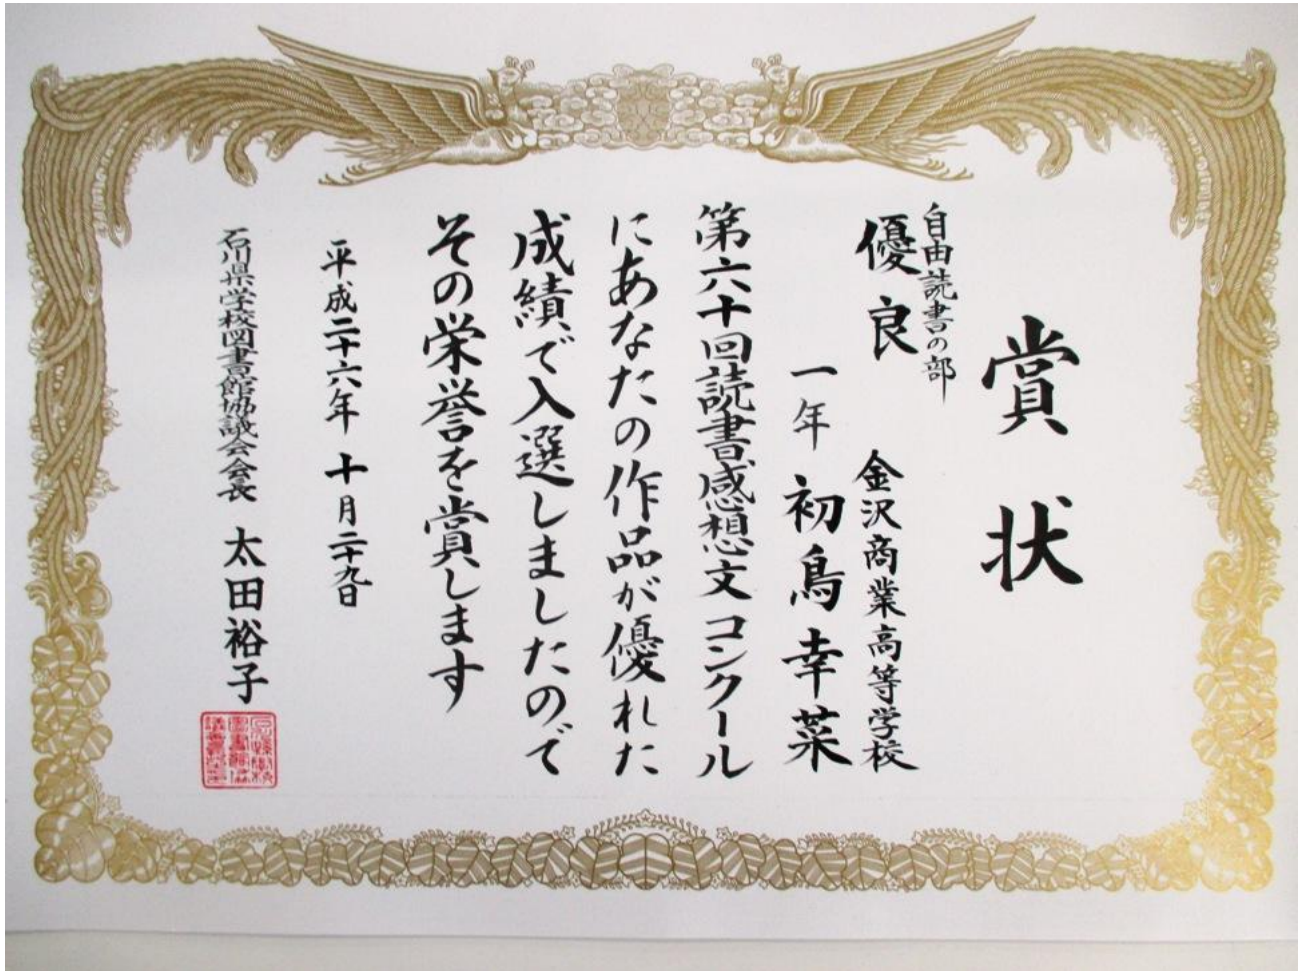 賞状
自由読書の部
優良
金沢商業高等学校
一年 初鳥幸菜
第六十回読書感想文コンクール
にあなたの作品が優れた
成績で入選しましたので
その栄誉を賞します
平成二十六年十月二十九日
石川県学校図書館協議会会長 太田裕子